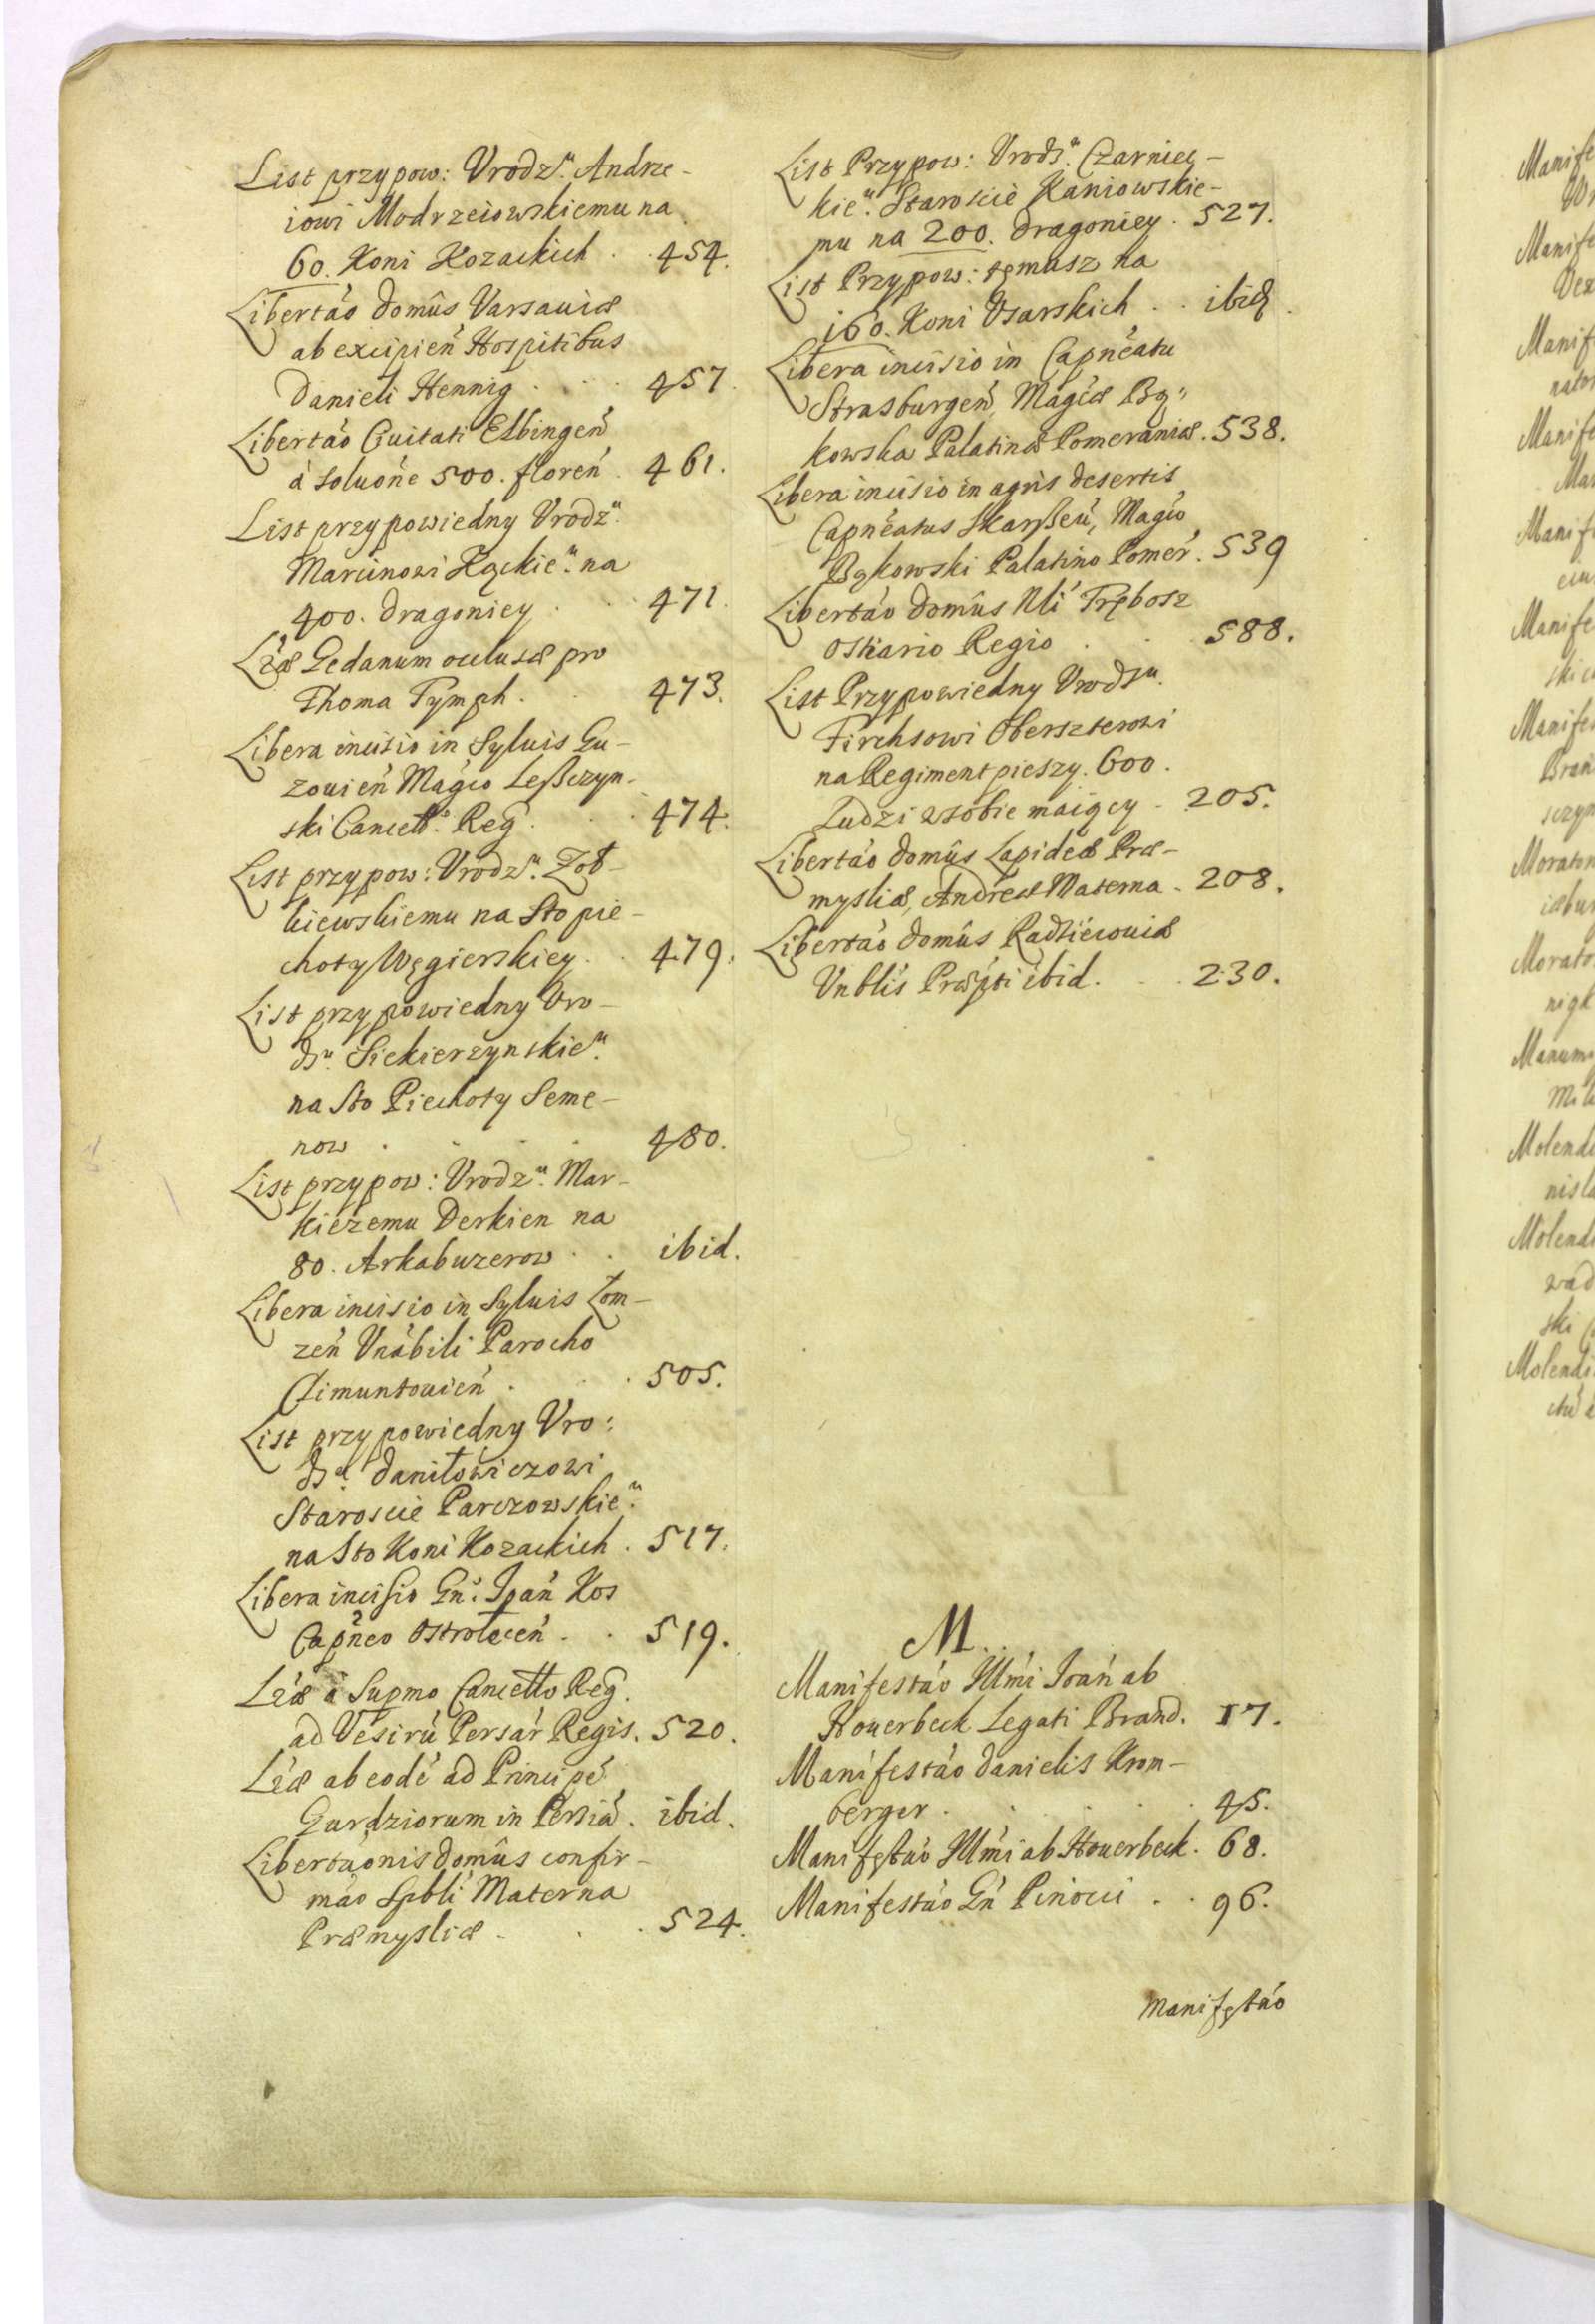 List przypow: Vrodz.u Andrze-
iowi Modrzeiowskiemu na
60. Koni Kozackich . . 454.
Libertáo domûs Varsauiæ
ab excipień Hospitibus
Danieli Hennig . . . 457.
Libertáo Ciuitati Elbingeń
à soluóne 500. floreń . 461.
List przypowiedny Vrodz.u
Marcinowi Kąckie.u na
400. dragoniey . . . 471.
Lræ Gedanum occlusæ pro
Thoma Tymph . . 473.
Libera incisio in Syluis Gu-
zouień Magco Leßczyn-
ski Cancell.o Reg . . . 474.
List przypow: Vrodz.u Żoł-
kiewskiemu na Sto pie-
choty Węgierskiey . . 479.
List przypowiedny Vro-
dz.u Siekierzynskie.u
na Sto Piechoty Seme-
now . . . 480.
List przypow: Vrodz.u Mar-
kiezemu Derkien na
80. Arkabuzerow . . ibid.
Libera incisio in Syluis Lom-
zeń Vnábili Parocho
Climuntouień . . . 505.
List przypowiedny Vro:
dz.u Daniłowiczowi
Staroscie Parczowskie.u
na Sto Koni Kozackich . 517.
Libera incisio Gń: Joań Kos
Capńeo Ostroleceń . . 519.
Lræ à Supmo Cancello Reg.
ad Vesirú Persár Regis. 520.
Lræ ab eodé ad Principé
Gurdziorum in Persiá . ibid.
Libertaónis domûs confir-
máo Spbli Materna
Præmysliæ . . . 524.
List Przypow: Vrodz.u Czarniec-
kie.u Staroscie Kaniowskie-
mu na 200. dragoniey . 527.
List Przypow: temusz na
160. Koni Vsarskich . . ibid.
Libera incisio in Capńeatu
Strasburgeń, Magcæ Bą:
kowska Palatinæ Pomeraniæ. 538.
Libera incisio in agris desertis
Capńeatus Skarßeú, Magco
Bąkowski Palatino Pomer. 539
Libertáo domûs Nli Trębosz
Ostiario Regio . . 588.
List Przypowiedny Vrodz.u
Firchsowi Obersterowi
na Regiment pieszy. 600.
Ludzi w sobie maiący . 205.
Libertáo domûs Lapideæ Præ-
mysliæ, Andreæ Materna . 208.
Libertáo domûs Radzieiouiæ
Vnblis Præpti ibid. . . 230.
M.
Manifestáo Illmi Joań ab
Houerbeck Legati Brand. 17.
Manifestáo Danielis Krom-
berger . . . . 45.
Manifestáo Illmi ab Houerbeck. 68.
Manifestáo Gń Pinocci . . 96.
Manifestáo